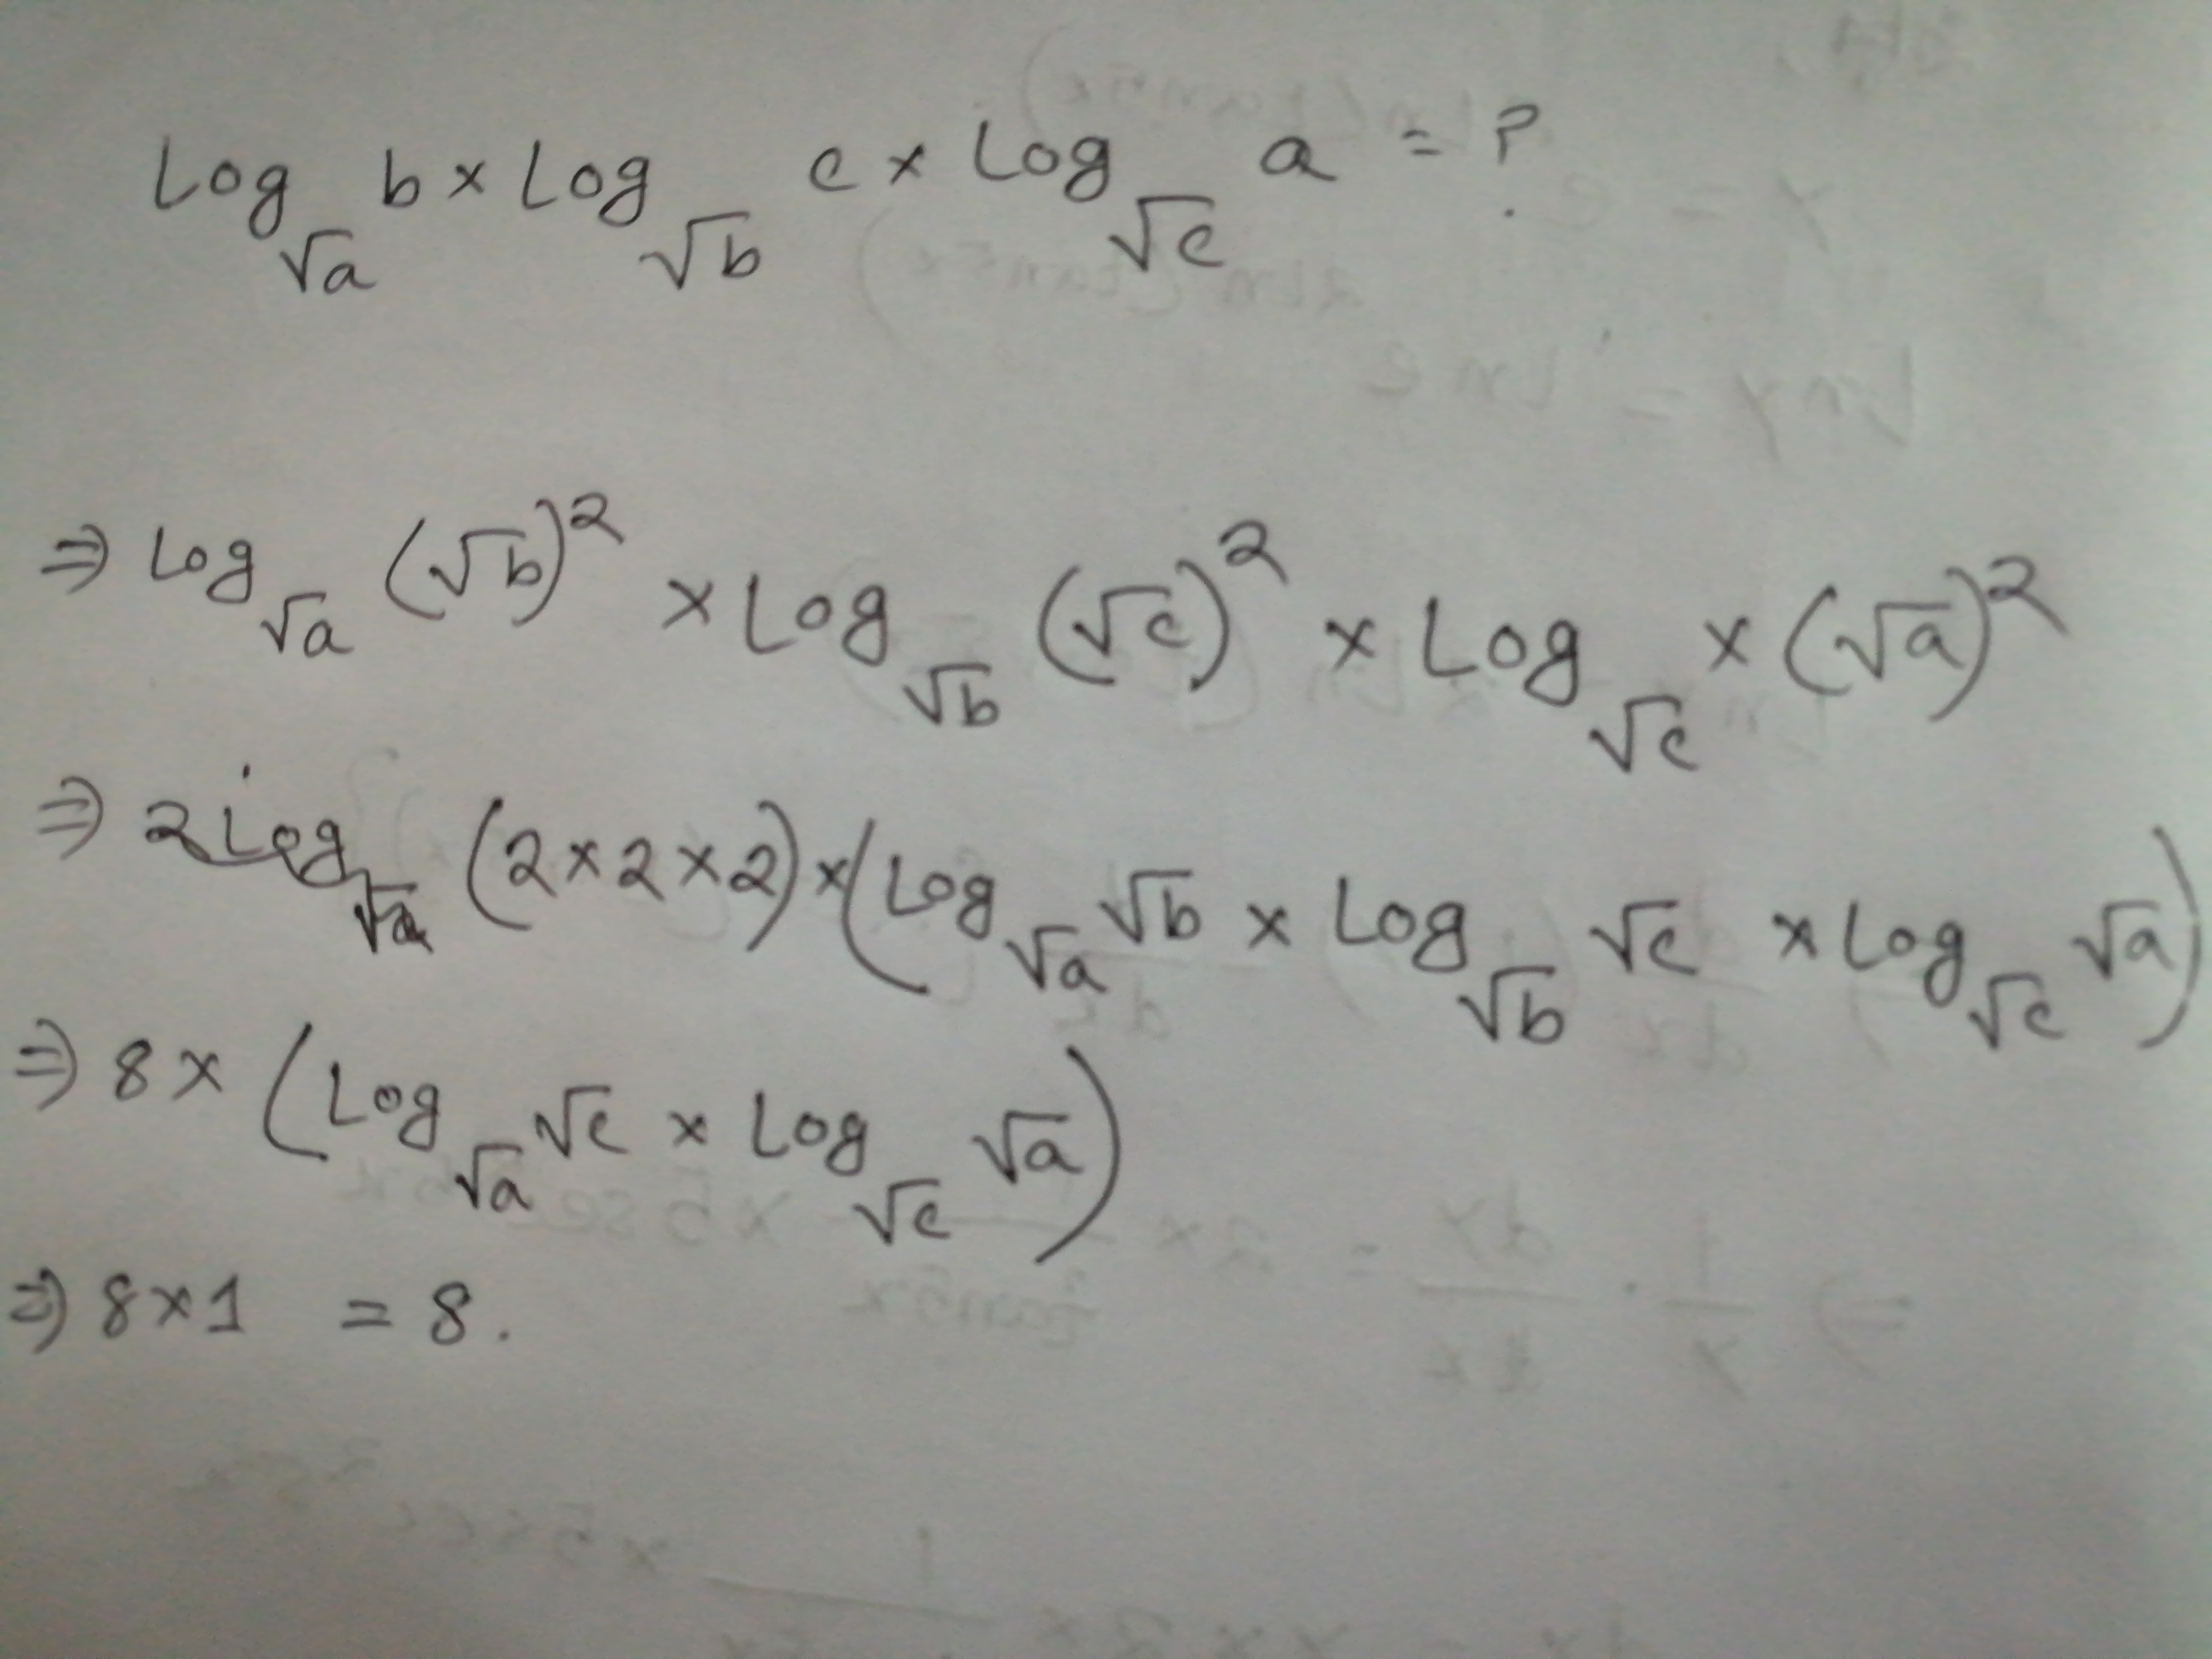 Log_√a b × Log_√b c × Log_√c a = ?
⇒ Log_√a (√b)² × Log_√b (√c)² × Log_√c × (√a)²
⇒ (2×2×2) × (Log_√a √b × Log_√b √c × Log_√c √a)
⇒ 8 × (Log_√a √c × Log_√c √a)
⇒ 8×1 = 8.